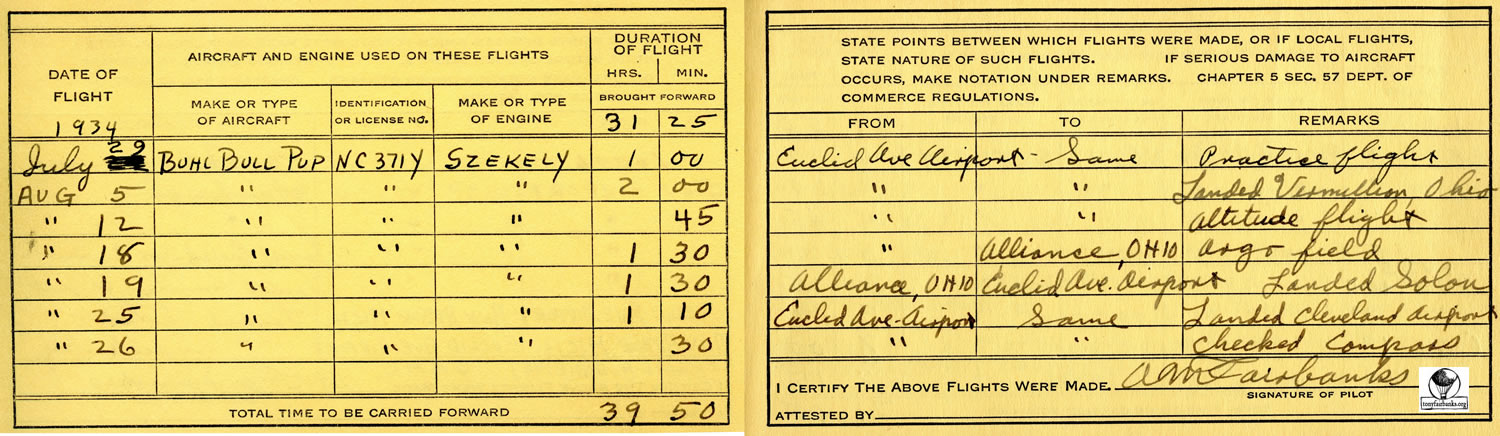 DATE OF FLIGHT
1934
AIRCRAFT AND ENGINE USED ON THESE FLIGHTS
DURATION OF FLIGHT
HRS. MIN.
MAKE OR TYPE OF AIRCRAFT
IDENTIFICATION OR LICENSE NO.
MAKE OR TYPE OF ENGINE
BROUGHT FORWARD
31 25
July 29 BUHL BULL PUP NC371Y SZEKELY 1 00
AUG 5 " " " 2 00
" 12 " " " 45
" 18 " " " 1 30
" 19 " " " 1 30
" 25 " " " 1 10
" 26 " " " 30
TOTAL TIME TO BE CARRIED FORWARD 39 50
STATE POINTS BETWEEN WHICH FLIGHTS WERE MADE, OR IF LOCAL FLIGHTS,
STATE NATURE OF SUCH FLIGHTS. IF SERIOUS DAMAGE TO AIRCRAFT
OCCURS, MAKE NOTATION UNDER REMARKS. CHAPTER 5 SEC. 57 DEPT. OF
COMMERCE REGULATIONS.
FROM TO REMARKS
Euclid Ave Airport - Same Practice flight
" " Landed Vermillion, Ohio
" " Altitude flight
" Alliance, OHIO Argo field
Alliance, OHIO Euclid Ave. Airport Landed Solon
Euclid Ave. Airport Same Landed Cleveland Airport
" " Checked Compass
I CERTIFY THE ABOVE FLIGHTS WERE MADE. A M Fairbanks
SIGNATURE OF PILOT
ATTESTED BY
tonyfairbanks.org